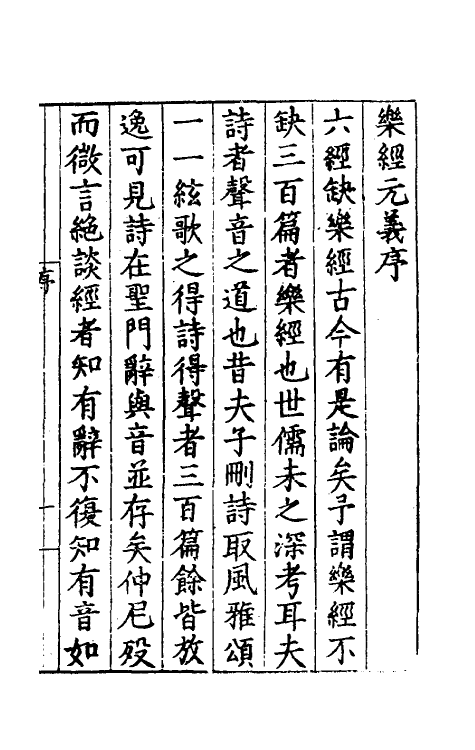 樂經元義序
六經缺樂經古今有是論矣予謂樂經不
缺三百篇者樂經也世儒未之深考耳夫
詩者聲音之道也昔夫子刪詩取風雅頌
一一絃歌之得詩得聲者三百篇餘皆放
逸可見詩在聖門辭與音並存矣仲尼歿
而微言絶談經者知有辭不復知有音如
序
一